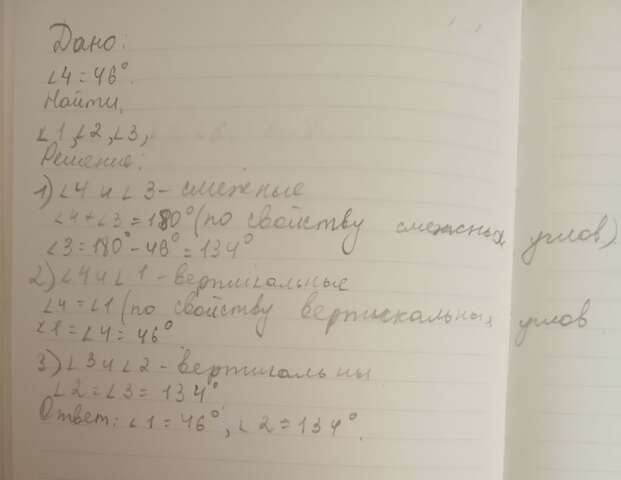 Дано:
∠4 = 46°.
Найти,
∠1, ∠2, ∠3,
Решение:
1) ∠4 и ∠3 - смежные
∠4 + ∠3 = 180° (по свойству смежных углов)
∠3 = 180° - 46° = 134°
2) ∠4 и ∠1 - вертикальные
∠4 = ∠1 (по свойству вертикальных углов
∠1 = ∠4 = 46°
3) ∠3 и ∠2 - вертикальны
∠2 = ∠3 = 134°.
Ответ: ∠1 = 46°, ∠2 = 134°.